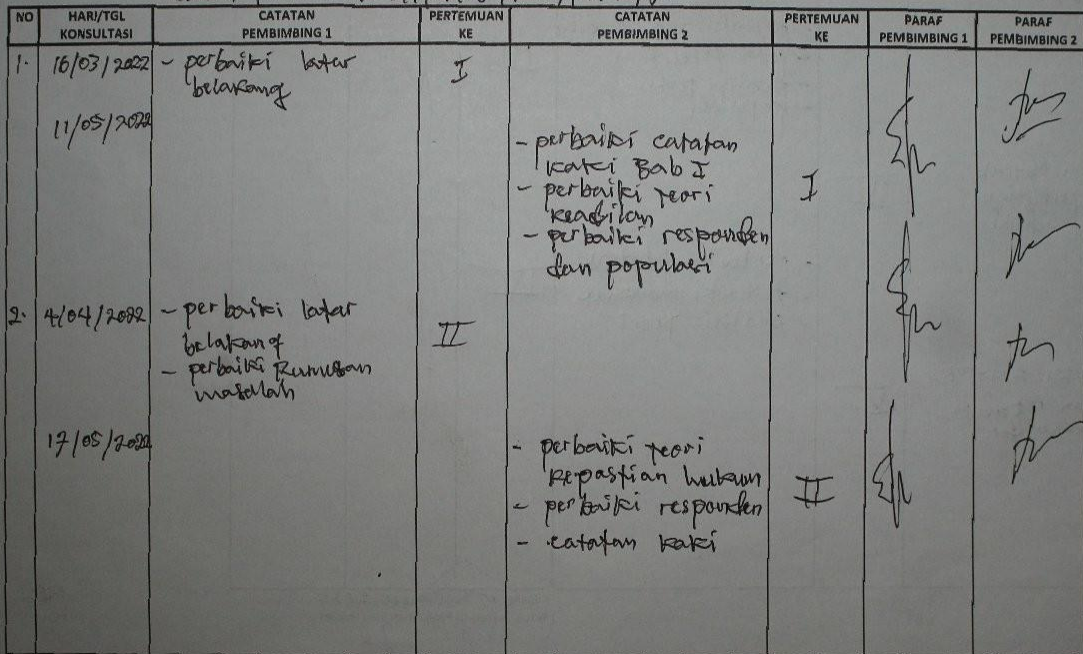 NO HARI/TGL KONSULTASI CATATAN PEMBIMBING 1 PERTEMUAN KE CATATAN PEMBIMBING 2 PERTEMUAN KE PARAF PEMBIMBING 1 PARAF PEMBIMBING 2
1. 16/03/2022 - perbaiki latar I
belakang
11/05/2022
- perbaiki catatan
kaki Bab I
- perbaiki teori I
keadilan
- perbaiki responden
dan populasi
2. 4/04/2022 - perbaiki latar II
belakang
- perbaiki Rumusan
masalah
17/05/2022
- perbaiki teori
kepastian hukum II
- perbaiki responden
- catatan kaki